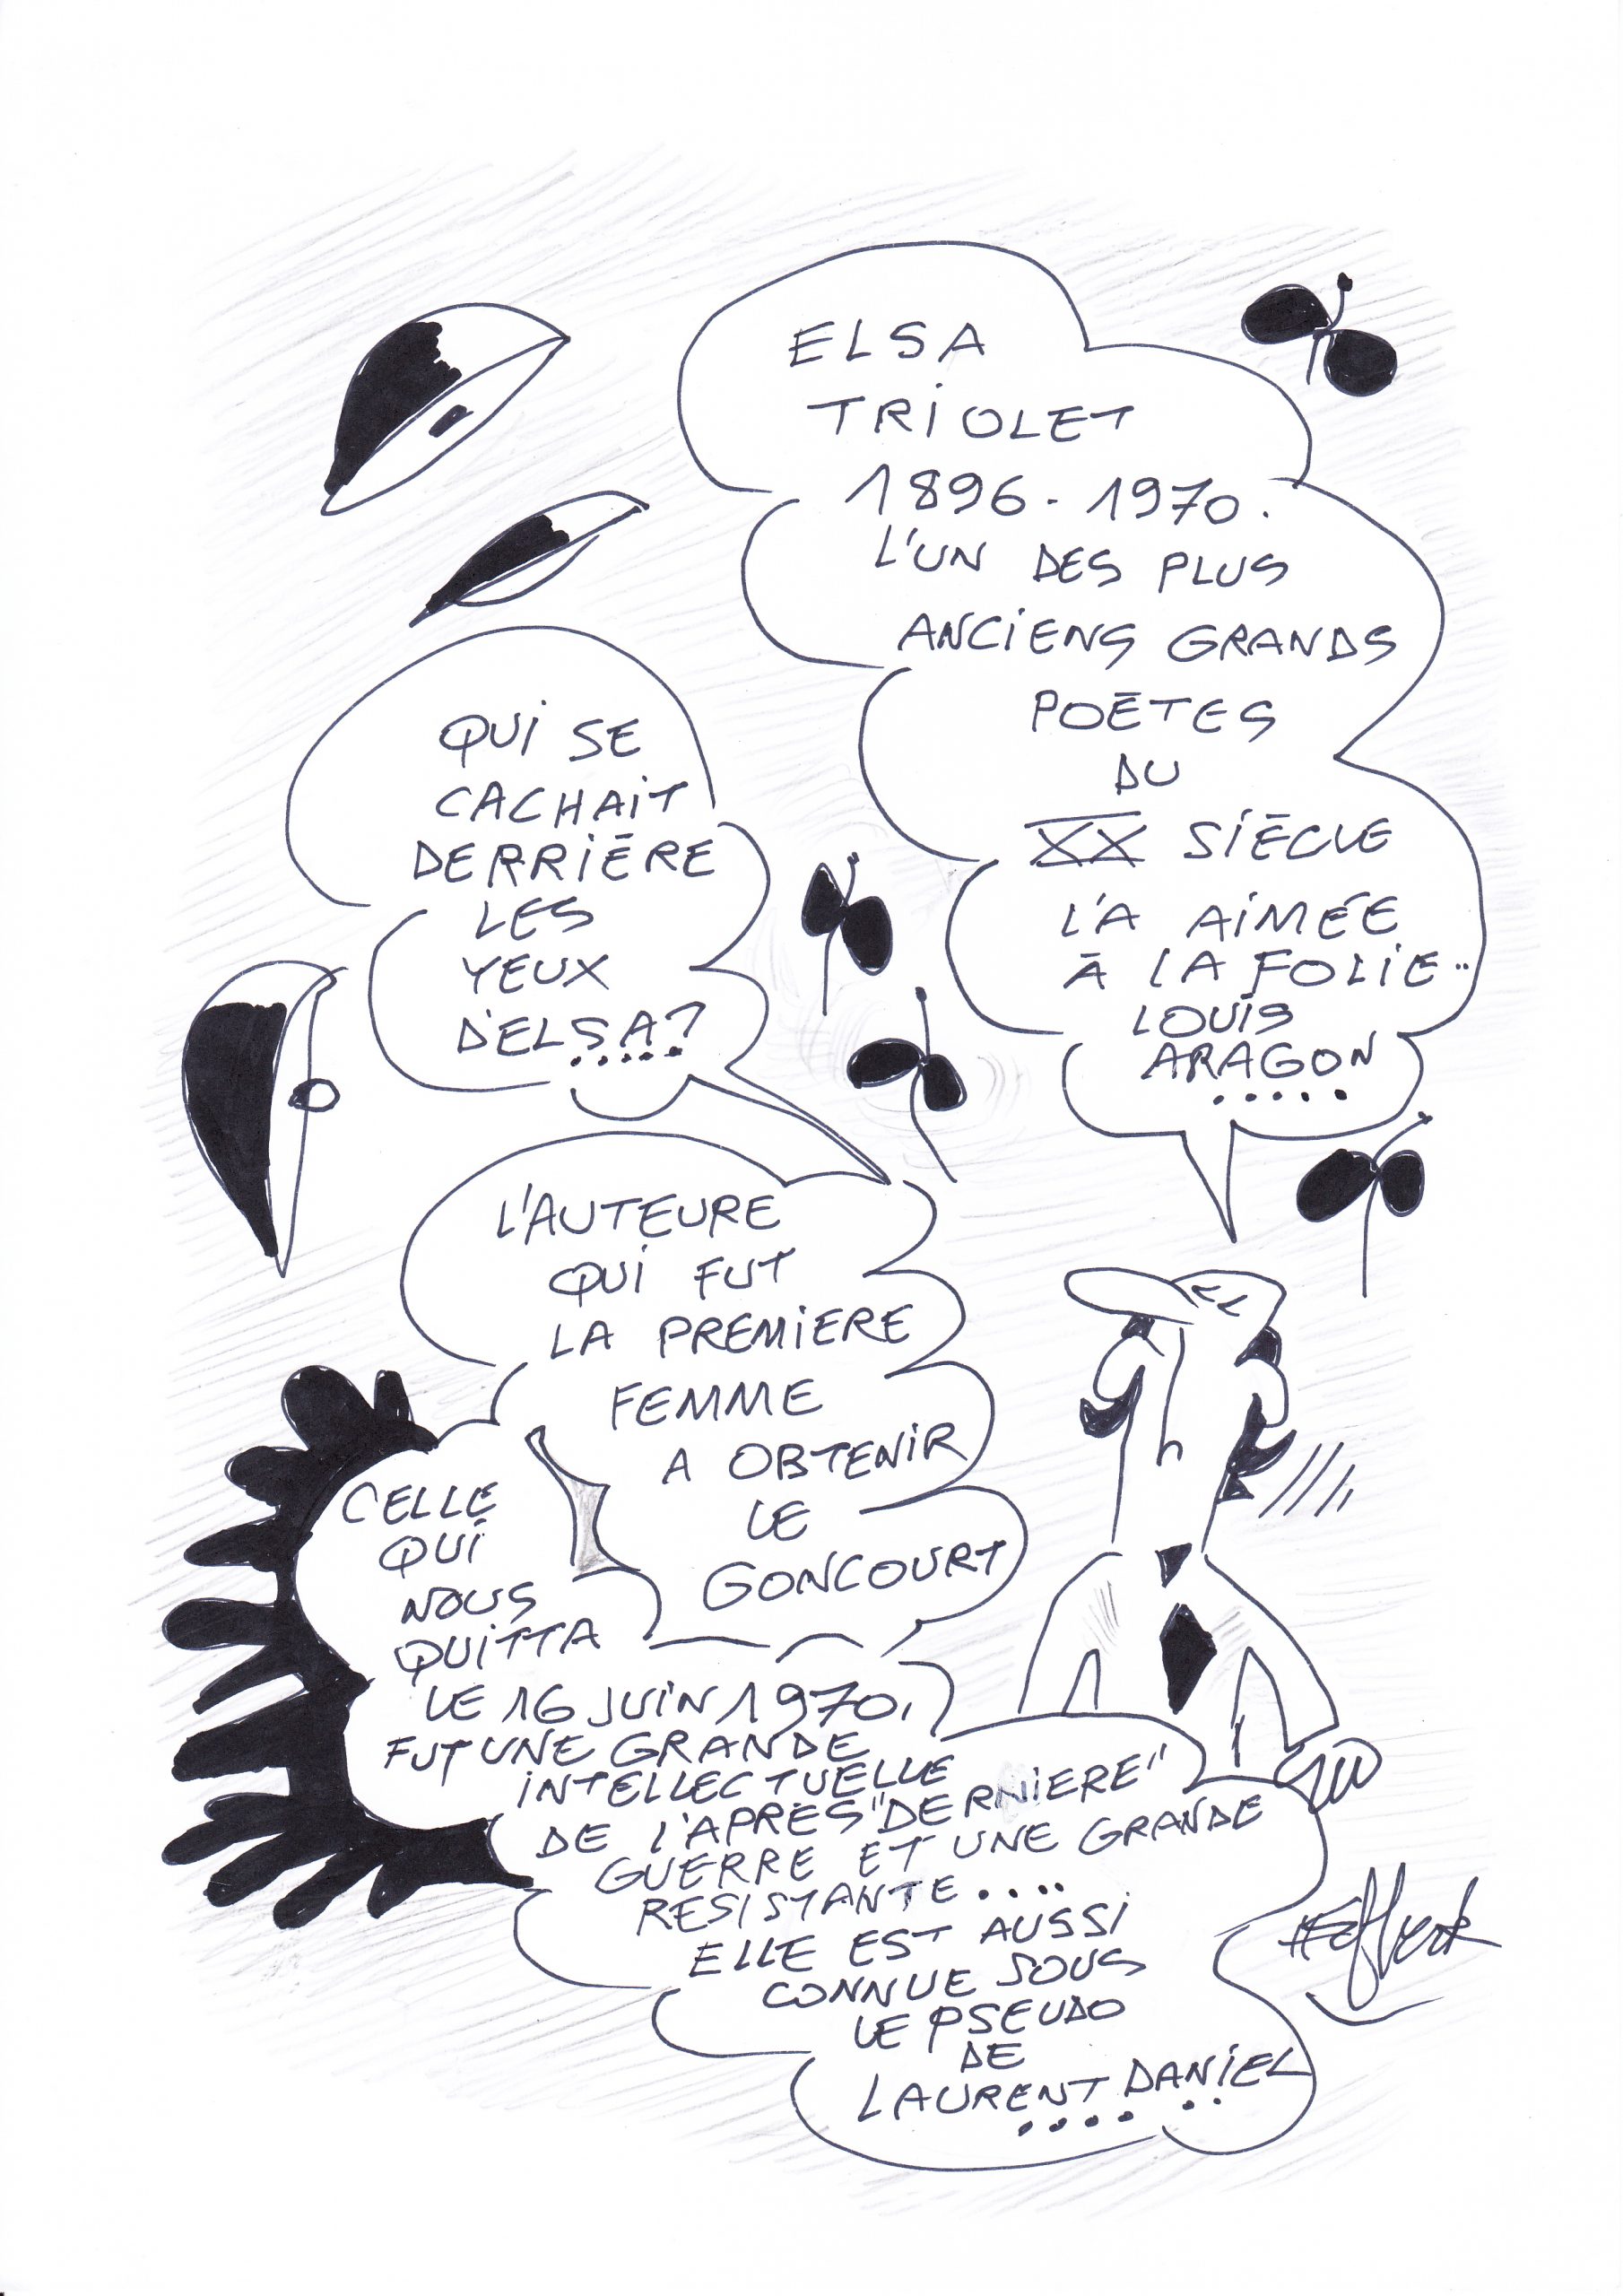 ELSA
TRIOLET
1896-1970.
L'UN DES PLUS
ANCIENS GRANDS
POËTES
DU
XX SIÈCLE
L'A AIMÉE
À LA FOLIE..
LOUIS
ARAGON
.....
QUI SE
CACHAIT
DERRIÈRE
LES
YEUX
D'ELSA?
.....
L'AUTEURE
QUI FUT
LA PREMIERE
FEMME
A OBTENIR
LE
GONCOURT
CELLE
QUI
NOUS
QUITTA
LE 16 JUIN 1970,
FUT UNE GRANDE
INTELLECTUELLE
DE L'APRÈS "DERNIERE"
GUERRE ET UNE GRANDE
RESISTANTE....
ELLE EST AUSSI
CONNUE SOUS
LE PSEUDO
DE
LAURENT DANIEL
.... ..